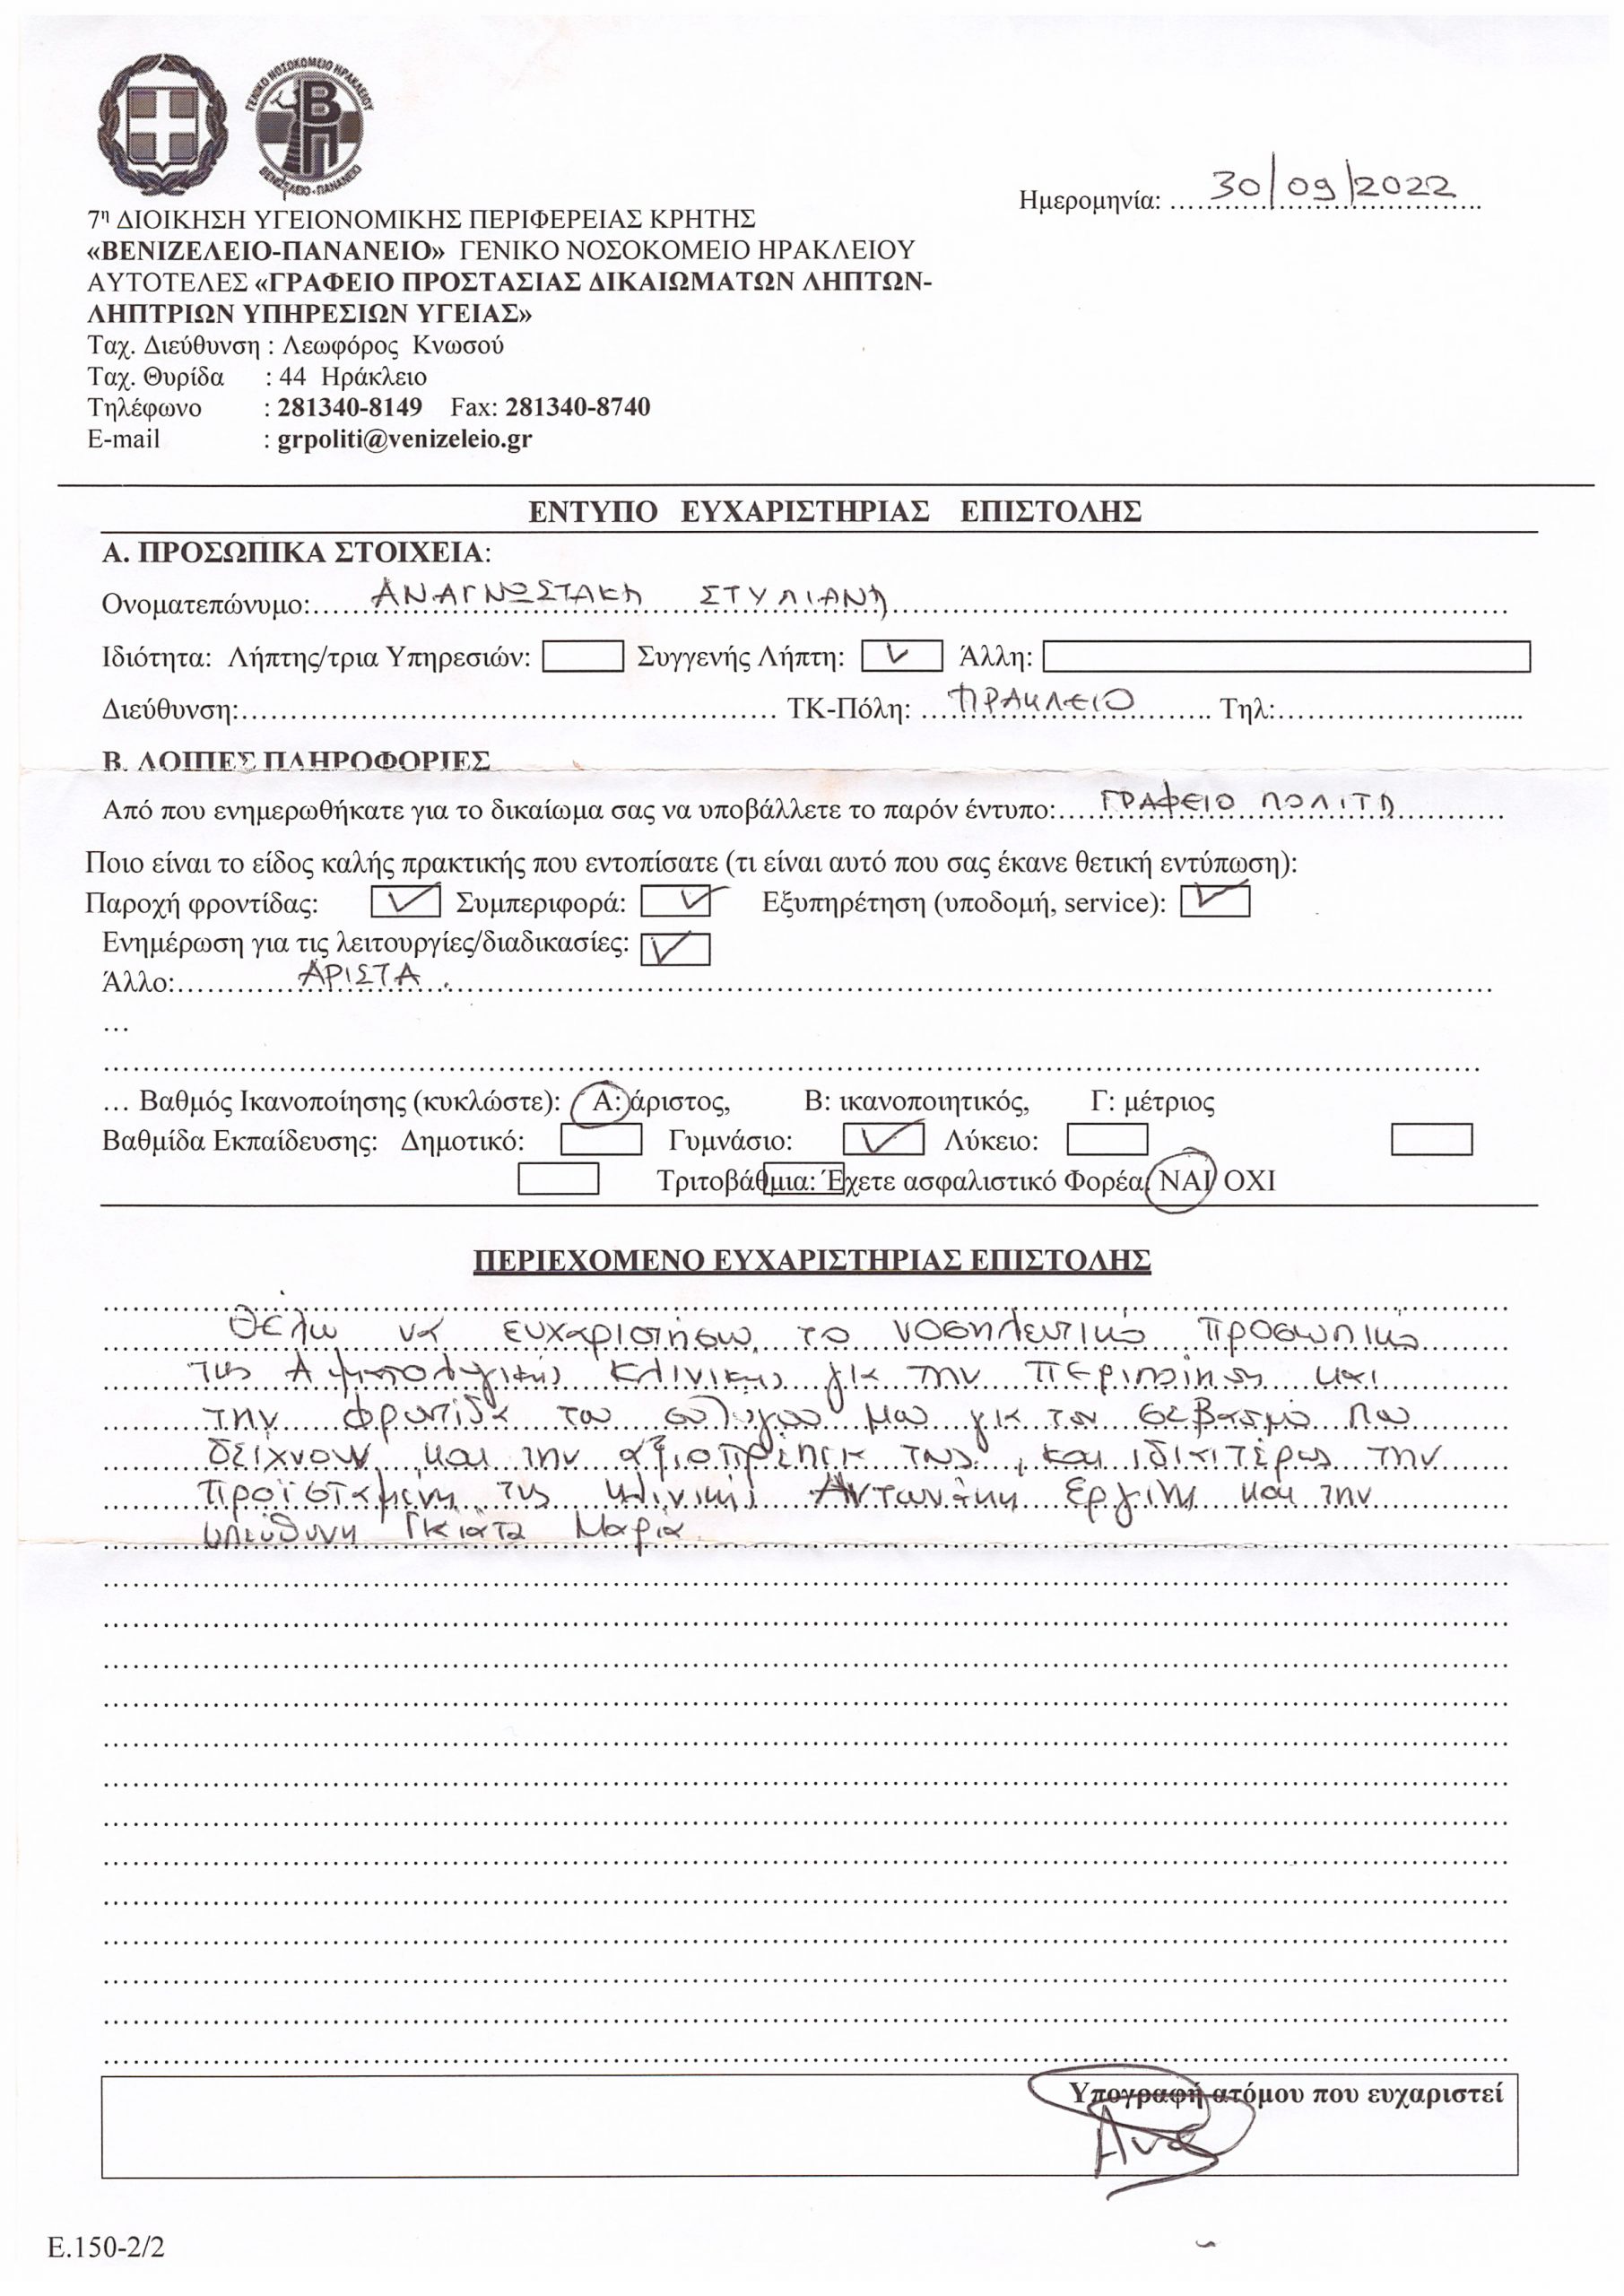 ΓΕΝΙΚΟ ΝΟΣΟΚΟΜΕΙΟ ΗΡΑΚΛΕΙΟΥ
ΒΠ
ΒΕΝΙΖΕΛΕΙΟ-ΠΑΝΑΝΕΙΟ
Ημερομηνία: 30/09/2022
7η ΔΙΟΙΚΗΣΗ ΥΓΕΙΟΝΟΜΙΚΗΣ ΠΕΡΙΦΕΡΕΙΑΣ ΚΡΗΤΗΣ
«ΒΕΝΙΖΕΛΕΙΟ-ΠΑΝΑΝΕΙΟ» ΓΕΝΙΚΟ ΝΟΣΟΚΟΜΕΙΟ ΗΡΑΚΛΕΙΟΥ
ΑΥΤΟΤΕΛΕΣ «ΓΡΑΦΕΙΟ ΠΡΟΣΤΑΣΙΑΣ ΔΙΚΑΙΩΜΑΤΩΝ ΛΗΠΤΩΝ-
ΛΗΠΤΡΙΩΝ ΥΠΗΡΕΣΙΩΝ ΥΓΕΙΑΣ»
Ταχ. Διεύθυνση : Λεωφόρος Κνωσού
Ταχ. Θυρίδα : 44 Ηράκλειο
Τηλέφωνο : 281340-8149 Fax: 281340-8740
E-mail : grpoliti@venizeleio.gr
ΕΝΤΥΠΟ ΕΥΧΑΡΙΣΤΗΡΙΑΣ ΕΠΙΣΤΟΛΗΣ
Α. ΠΡΟΣΩΠΙΚΑ ΣΤΟΙΧΕΙΑ:
Ονοματεπώνυμο: ΑΝΑΓΝΩΣΤΑΚΗ ΣΤΥΛΙΑΝΗ
Ιδιότητα: Λήπτης/τρια Υπηρεσιών: Συγγενής Λήπτη: ✓ Άλλη:
Διεύθυνση: ΤΚ-Πόλη: ΗΡΑΚΛΕΙΟ Τηλ:
Β. ΛΟΙΠΕΣ ΠΛΗΡΟΦΟΡΙΕΣ
Από που ενημερωθήκατε για το δικαίωμα σας να υποβάλλετε το παρόν έντυπο: ΓΡΑΦΕΙΟ ΠΟΛΙΤΗ
Ποιο είναι το είδος καλής πρακτικής που εντοπίσατε (τι είναι αυτό που σας έκανε θετική εντύπωση):
Παροχή φροντίδας: ✓ Συμπεριφορά: ✓ Εξυπηρέτηση (υποδομή, service): ✓
Ενημέρωση για τις λειτουργίες/διαδικασίες: ✓
Άλλο: ΑΡΙΣΤΑ.
…
… Βαθμός Ικανοποίησης (κυκλώστε): Α: άριστος, Β: ικανοποιητικός, Γ: μέτριος
Βαθμίδα Εκπαίδευσης: Δημοτικό: Γυμνάσιο: ✓ Λύκειο:
Τριτοβάθμια: Έχετε ασφαλιστικό Φορέα: ΝΑΙ ΟΧΙ
ΠΕΡΙΕΧΟΜΕΝΟ ΕΥΧΑΡΙΣΤΗΡΙΑΣ ΕΠΙΣΤΟΛΗΣ
Θέλω να ευχαριστήσω το νοσηλευτικό προσωπικό
της κλινικής για την περιποίηση και
την φροντίδα του συζύγου μου για τον σεβασμό που
δείχνουν και την αξιοπρέπεια τους, και ιδιαιτέρως την
προϊσταμένη της κλινικής Αντωνάκη Εργίνη και την
υπεύθυνη Γκιάτα Μαρία.
Υπογραφή ατόμου που ευχαριστεί
Ε.150-2/2